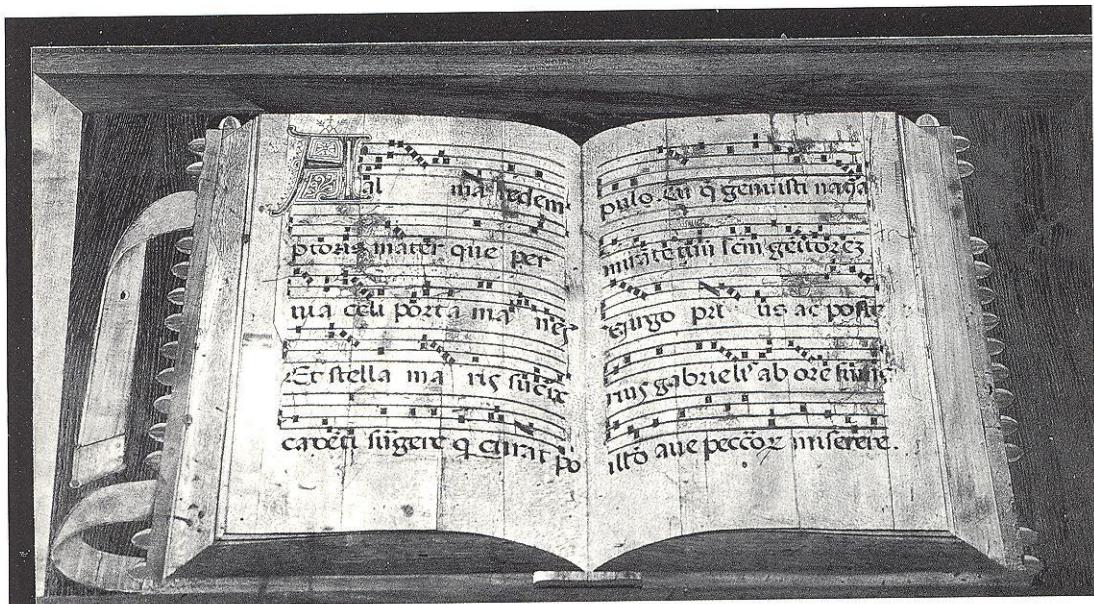 Al ma redem
ptoris mater que per
uia celi porta ma nes
Et stella ma ris sucur
cadẽti sũrgere q curat po
pulo. Tu q̃ genuisti natã
mirãte tuũ scm̃ genitorẽz
Virgo pri us ac poste
rius gabrielis ab ore
illũd aue peccorꝝ miserere.